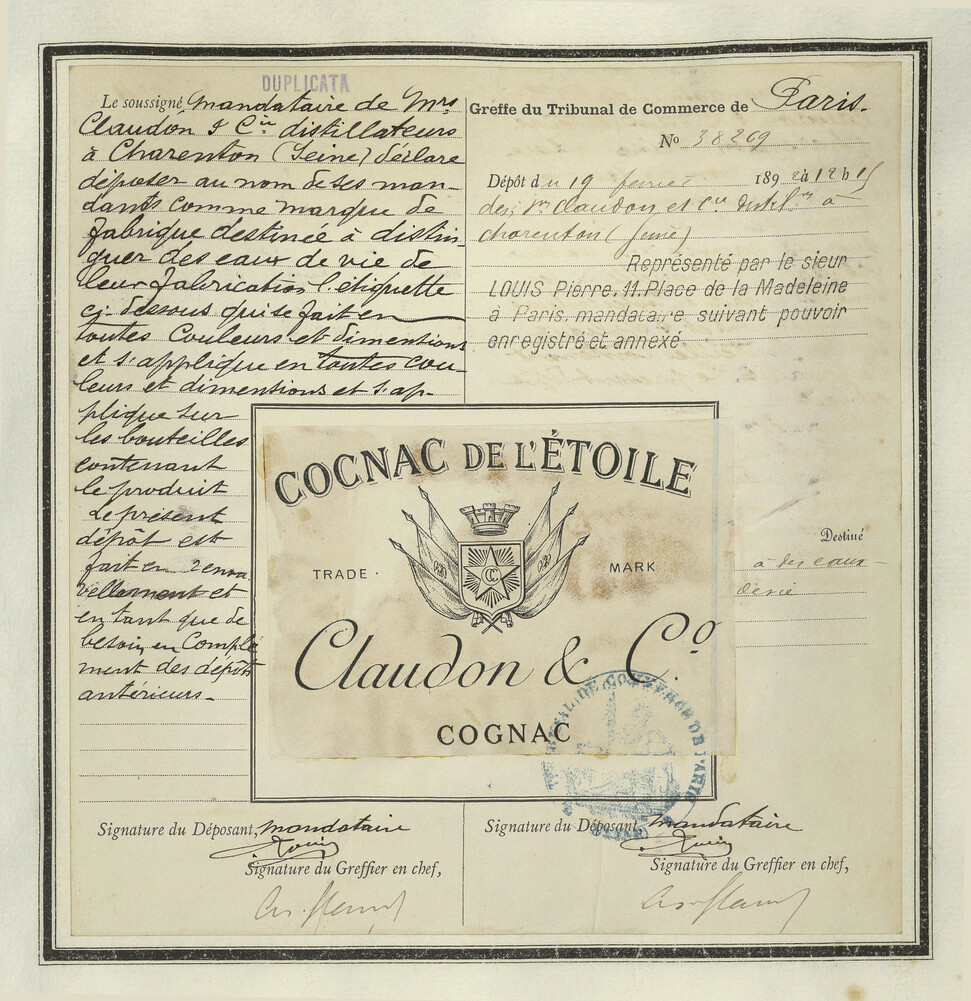 DUPLICATA
Le soussigné mandataire de Mrs
Claudon & Cie distillateurs
à Charenton (Seine) déclare
déposer au nom de ses man-
dants comme marque de
fabrique destinée à distin
guer des eaux de vie de
leur fabrication l'étiquette
ci-dessous qui se fait en
toutes couleurs et dimentions
et s'applique en toutes cou-
leurs et dimentions et s'ap-
plique sur
les bouteilles
contenant
le produit
Le présent
dépot est
fait en renou
vellement et
en tant que de
besoin, en Complé
ment des dépôts
antérieurs.-
Greffe du Tribunal de Commerce de Paris.
No 38269
Dépôt du 19 fevrier 1892 à 12 h 15
des Claudon et Cie à
Charenton (Seine)
Représenté par le sieur
LOUIS Pierre, 11, Place de la Madeleine
à Paris, mandataire suivant pouvoir
enregistré et annexé
Destiné
à des eaux-
de vie
COGNAC DE L'ÉTOILE
CC
TRADE · MARK
Claudon & Co.
COGNAC
TRIBUNAL DE COMMERCE DE PARIS
Signature du Déposant, mandataire
Louis
Signature du Greffier en chef,
Signature du Déposant, mandataire
Louis
Signature du Greffier en chef,